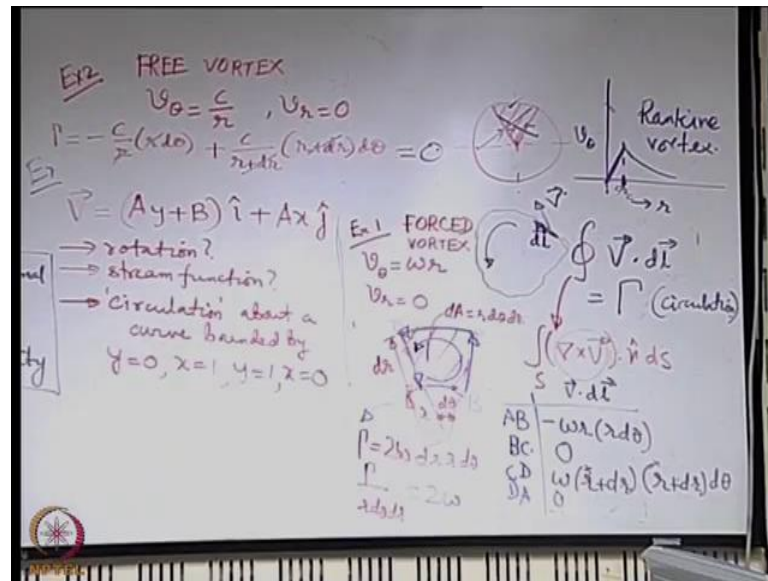 Ex2 FREE VORTEX
Vθ = c/r , Vr = 0
Γ = -c/r (r dθ) + c/(r+dr) (r+dr) dθ = 0
Vθ
r
Rankine
vortex.
V⃗ = (Ay+B) î + Ax ĵ
→ rotation?
→ stream function?
→ 'circulation' about a
curve bounded by
y=0, x=1, y=1, x=0
Ex 1 FORCED
VORTEX
Vθ = ωr
Vr = 0
dA = r dθ dr
dr
dθ
Γ = 2ω dr r dθ
Γ/(r dθ dr) = 2ω
V⃗
dl⃗
∮ V⃗ · dl⃗
= Γ (circulation)
∫(∇×V⃗) · n̂ ds
S
V⃗ · dl⃗
AB -ωr(r dθ)
BC 0
CD ω(r+dr)(r+dr)dθ
DA 0
NPTEL